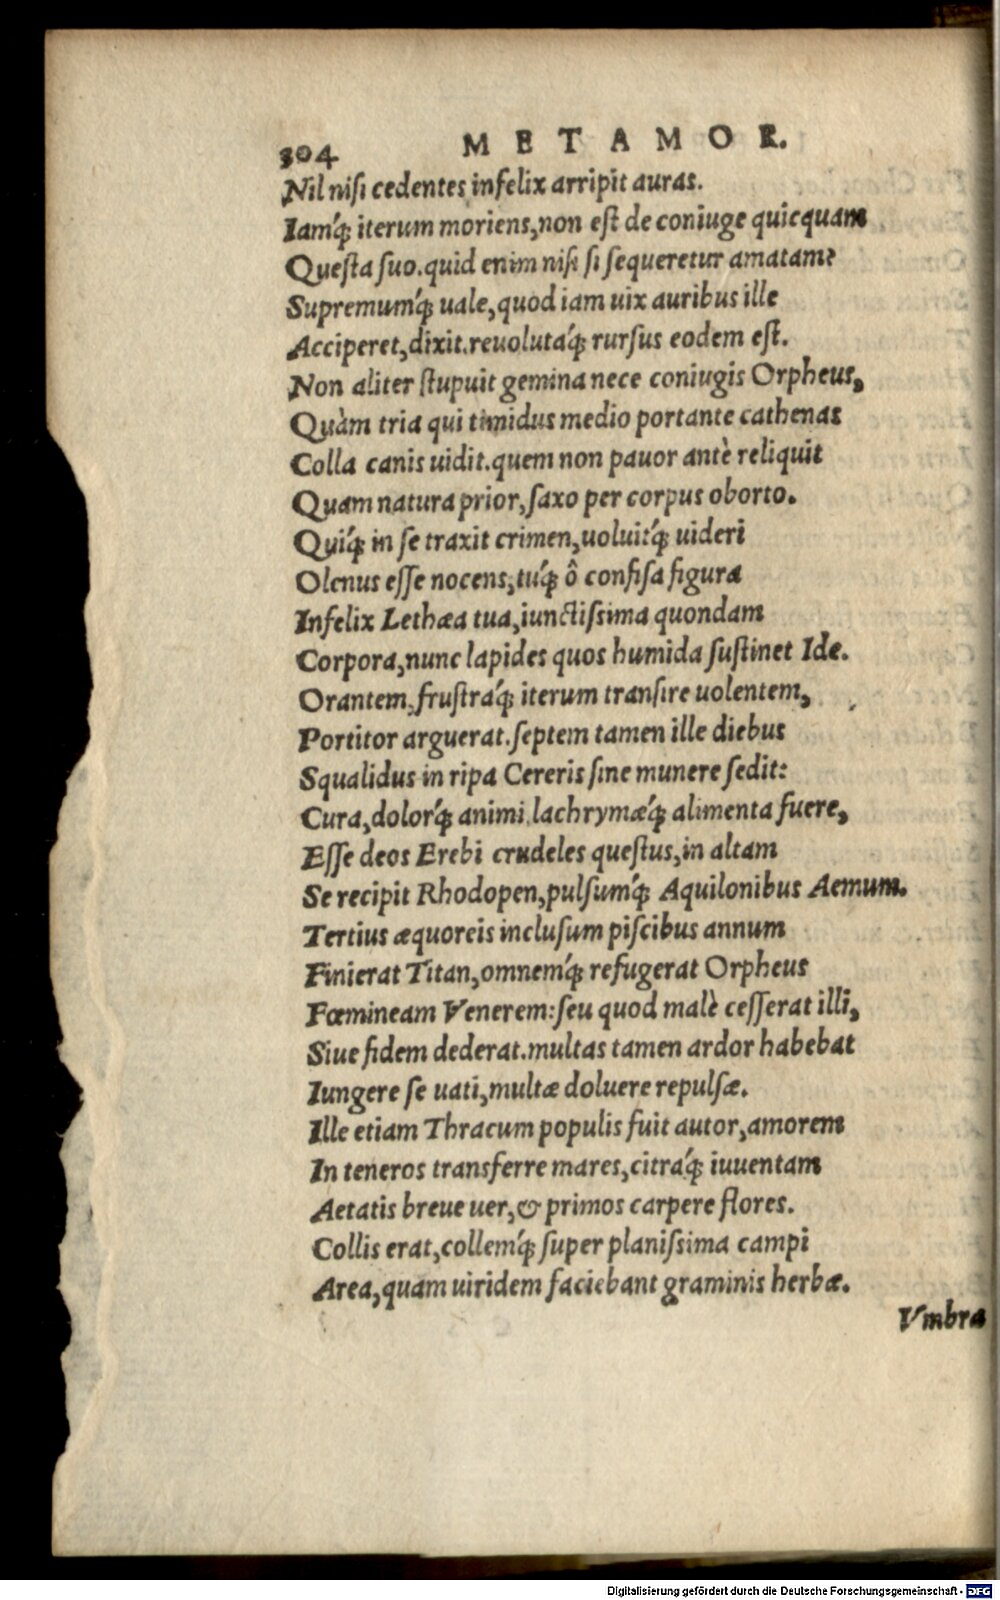 304 METAMOR.
Nil nisi cedentes infelix arripit auras.
Iamq́; iterum moriens, non est de coniuge quicquam
Questa suo. quid enim nisi si sequeretur amatam?
Supremumq́; uale, quod iam uix auribus ille
Acciperet, dixit. reuolutaq́; rursus eodem est.
Non aliter stupuit gemina nece coniugis Orpheus,
Quàm tria qui timidus medio portante cathenas
Colla canis uidit. quem non pauor antè reliquit
Quam natura prior, saxo per corpus oborto.
Quiq́; in se traxit crimen, uoluitq́; uideri
Olenus esse nocens, tuq́; ô confisa figura
Infelix Lethæa tua, iunctissima quondam
Corpora, nunc lapides quos humida sustinet Ide.
Orantem, frustraq́; iterum transire uolentem,
Portitor arguerat. septem tamen ille diebus
Squalidus in ripa Cereris sine munere sedit:
Cura, dolorq́; animi lachrymæq́; alimenta fuere,
Esse deos Erebi crudeles questus, in altam
Se recipit Rhodopen, pulsumq́; Aquilonibus Aemum.
Tertius æquoreis inclusum piscibus annum
Finierat Titan, omnemq́; refugerat Orpheus
Fœmineam Venerem: seu quod malè cesserat illi,
Siue fidem dederat. multas tamen ardor habebat
Iungere se uati, multæ doluere repulsæ.
Ille etiam Thracum populis fuit autor, amorem
In teneros transferre mares, citraq́; iuuentam
Aetatis breue uer, & primos carpere flores.
Collis erat, collemq́; super planissima campi
Area, quam uiridem faciebant graminis herbæ.
Vmbra
Digitalisierung gefördert durch die Deutsche Forschungsgemeinschaft - DFG